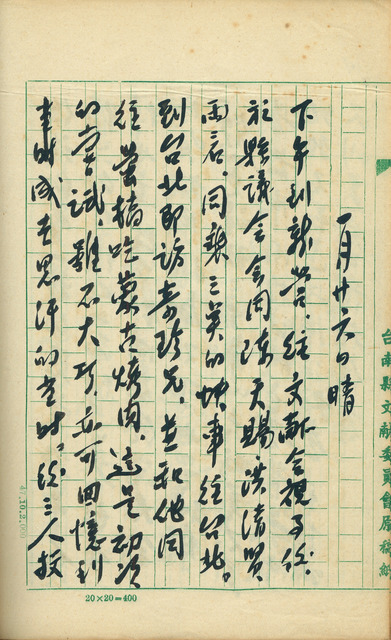 台南縣文獻委員會原稿紙
一月廿六日 晴
下午到新營,往文獻會視事後,
於縣議會會同陳天賜、洪清
兩君,同乘三的快車往台北。
到台北即訪兄,並和他同
往螢橋吃蒙古烤肉,這是初次
的嘗試,雖不大巧,亦可回憶到
成吉思汗的當時。後三人投
47.10.2,000
20×20=400